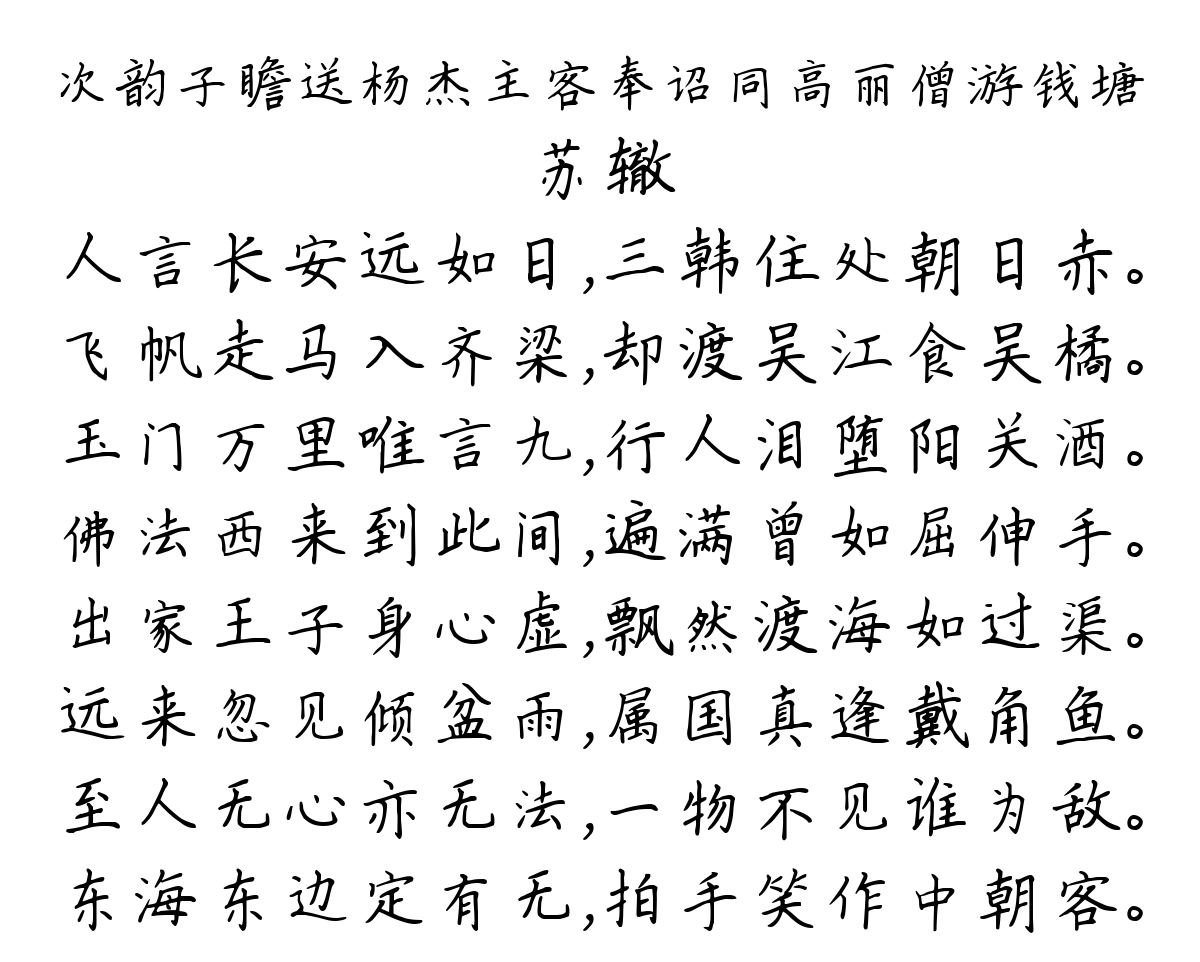 次韵子瞻送杨杰主客奉诏同高丽僧游钱塘
苏辙
人言长安远如日,三韩住处朝日赤。
飞帆走马入齐梁,却渡吴江食吴橘。
玉门万里唯言九,行人泪堕阳关酒。
佛法西来到此间,遍满曾如屈伸手。
出家王子身心虚,飘然渡海如过渠。
远来忽见倾盆雨,属国真逢戴角鱼。
至人无心亦无法,一物不见谁为敌。
东海东边定有无,拍手笑作中朝客。